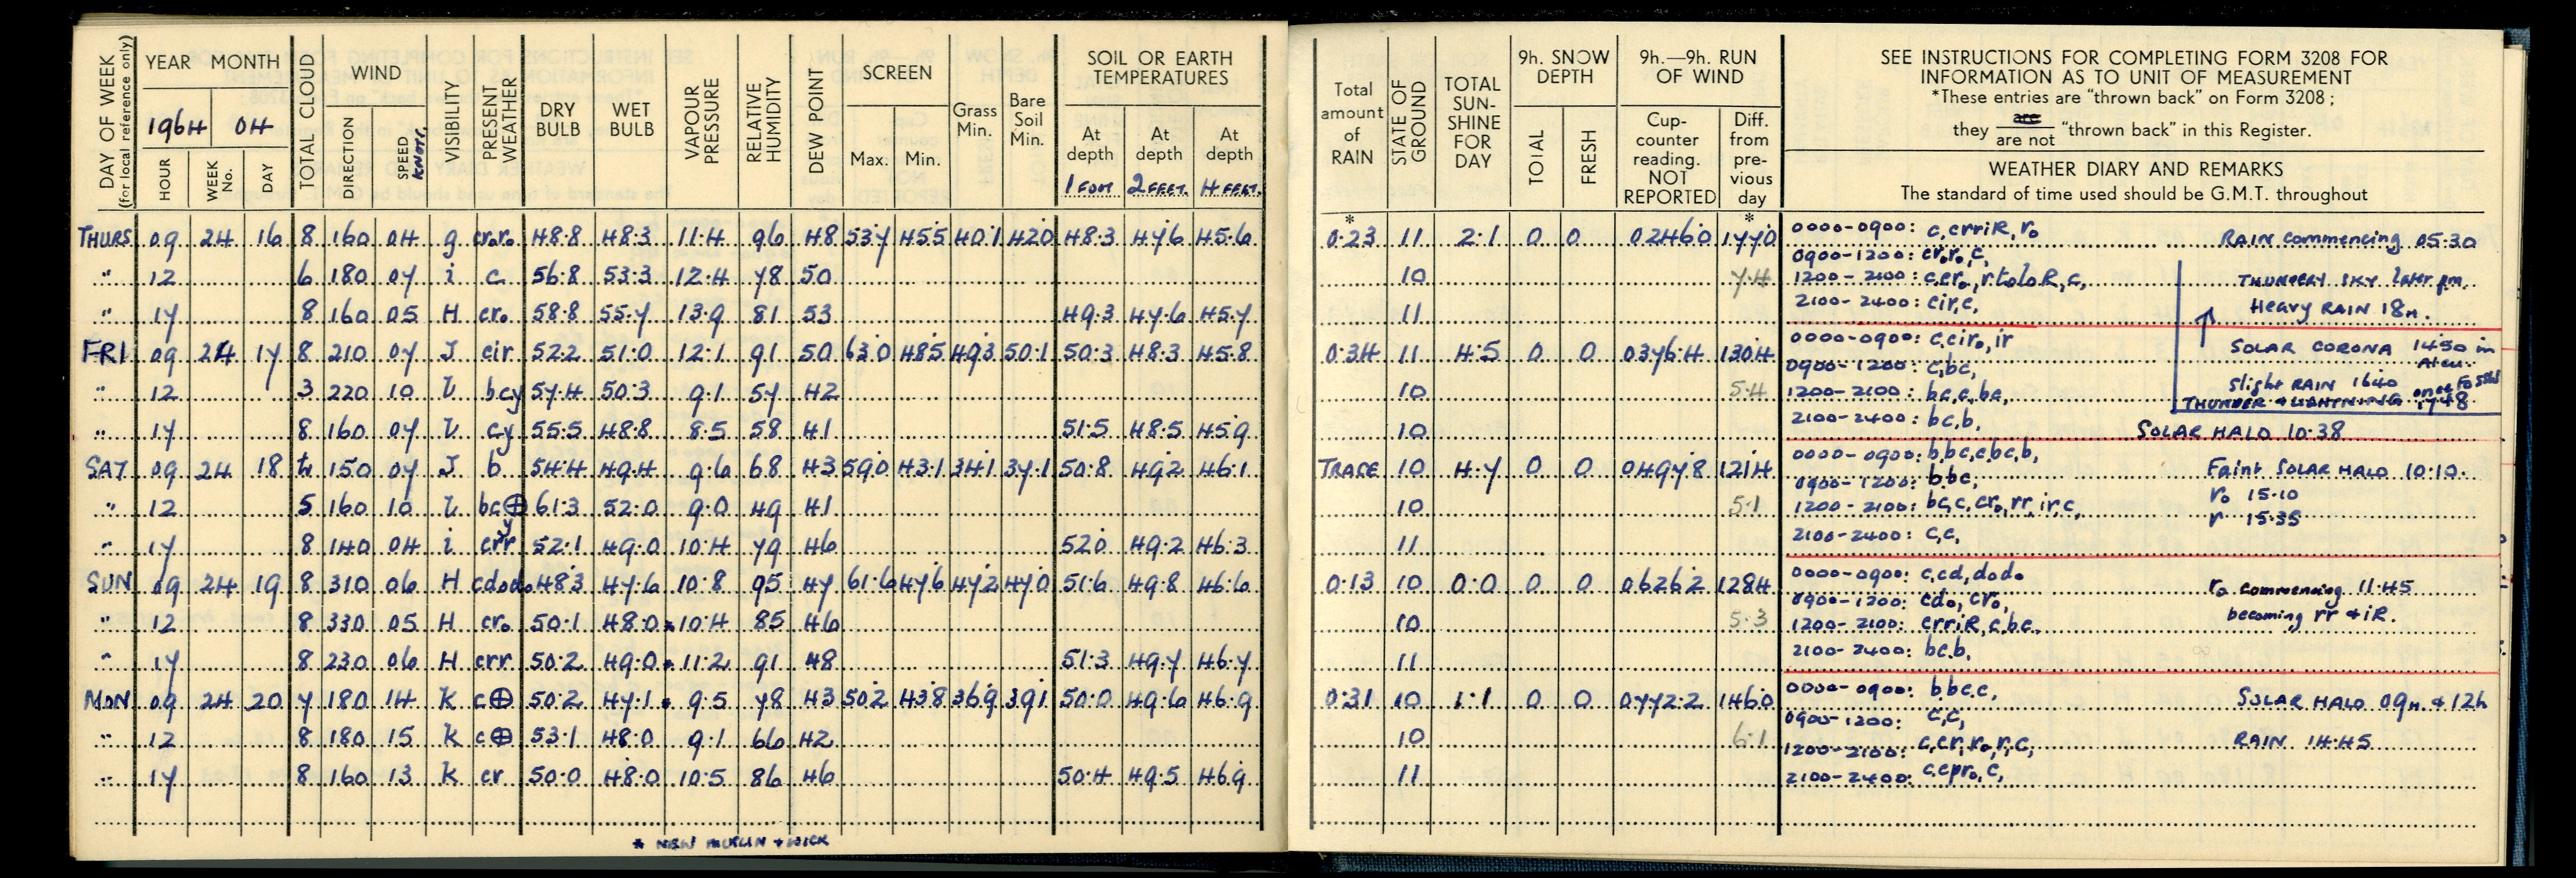 DAY OF WEEK (for local reference only)
YEAR MONTH
1964 04
HOUR WEEK No. DAY
TOTAL CLOUD
WIND
DIRECTION SPEED KNOTS.
VISIBILITY
PRESENT WEATHER
DRY BULB
WET BULB
VAPOUR PRESSURE
RELATIVE HUMIDITY
DEW POINT
SCREEN
Max. Min.
Grass Min.
Bare Soil Min.
SOIL OR EARTH TEMPERATURES
At depth 1 FOOT
At depth 2 FEET.
At depth 4 FEET.
THURS 09 24 16 8 160 04 g cr₀r₀ 48.8 48.3 11.4 96 48 53.7 45.5 40.1 42.0 48.3 47.6 45.6
" 12 6 180 07 i c 56.8 53.3 12.4 78 50
" 17 8 160 05 H cr₀ 58.8 55.7 13.9 81 53 49.3 47.6 45.7
FRI 09 24 17 8 210 07 J cir 52.2 51.0 12.1 91 50 63.0 48.5 49.3 50.1 50.3 48.3 45.8
" 12 3 220 10 l bcy 57.4 50.3 9.1 57 42
" 17 8 160 07 l cy 55.5 48.8 8.5 58 41 51.5 48.5 45.9
SAT 09 24 18 tr 150 07 J b 54.4 49.4 9.6 68 43 59.0 43.1 34.1 37.1 50.8 49.2 46.1
" 12 5 160 10 l bc⊕y 61.3 52.0 9.0 49 41
" 17 8 140 04 i crr 52.1 49.0 10.4 79 46 52.0 49.2 46.3
SUN 09 24 19 8 310 06 H cd₀d₀ 48.3 47.6 10.8 95 47 61.6 47.6 47.2 47.0 51.6 49.8 46.6
" 12 8 330 05 H cr₀ 50.1 48.0* 10.4 85 46
" 17 8 230 06 H crr 50.2 49.0* 11.2 91 48 51.3 49.7 46.7
MON 09 24 20 7 180 14 K c⊕ 50.2 47.1* 9.5 78 43 50.2 43.8 36.9 39.1 50.0 49.6 46.9
" 12 8 180 15 K c⊕ 53.1 48.0 9.1 66 42
" 17 8 160 13 K cr 50.0 48.0 10.5 86 46 50.4 49.5 46.9
* NEW MUSLIN + WICK
Total amount of RAIN *
STATE OF GROUND
TOTAL SUN-SHINE FOR DAY
9h. SNOW DEPTH
TOTAL FRESH
9h.—9h. RUN OF WIND
Cup-counter reading. NOT REPORTED
Diff. from pre-vious day *
SEE INSTRUCTIONS FOR COMPLETING FORM 3208 FOR
INFORMATION AS TO UNIT OF MEASUREMENT
*These entries are "thrown back" on Form 3208;
they are / are not "thrown back" in this Register.
WEATHER DIARY AND REMARKS
The standard of time used should be G.M.T. throughout
0.23 11 2.1 0 0 02460 1770 0000-0900: c,crriR,r₀ RAIN commencing 05.30
0900-1200: cr₀r₀,c,
10 7.4 1200-2100: c,cr₀,rtloloR,c, THUNDERY SKY later pm.
11 2100-2400: cir,c, Heavy RAIN 18h.
0.34 11 4.5 0 0 0376.4 1304 0000-0900: c,cir₀,ir SOLAR CORONA 1450 in Alcu.
0900-1200: c,bc,
10 5.4 1200-2100: bc,c,bc, Slight RAIN 1640
THUNDER & LIGHTNING once 1748
10 2100-2400: bc,b, SOLAR HALO 10.38
TRACE 10 4.7 0 0 0497.8 1214 0000-0900: b,bc,c,bc,b, Faint SOLAR HALO 10.10.
0900-1200: b,bc,
10 5.1 1200-2100: bc,c,cr₀,rr,ir,c, r₀ 15.10
r 15.35
11 2100-2400: c,c,
0.13 10 0.0 0 0 06262 1284 0000-0900: c,cd,d₀d₀ r₀ commencing 11.45
0900-1200: cd₀, cr₀,
10 5.3 1200-2100: crriR,c,bc, becoming rr & iR.
11 2100-2400: bc,b,
0.31 10 1.1 0 0 0772.2 1460 0000-0900: b,bc,c, SOLAR HALO 09h. & 12h
0900-1200: c,c,
10 6.1 1200-2100: c,cr,r₀,r,c, RAIN 14.45
11 2100-2400: c,cpr₀,c,